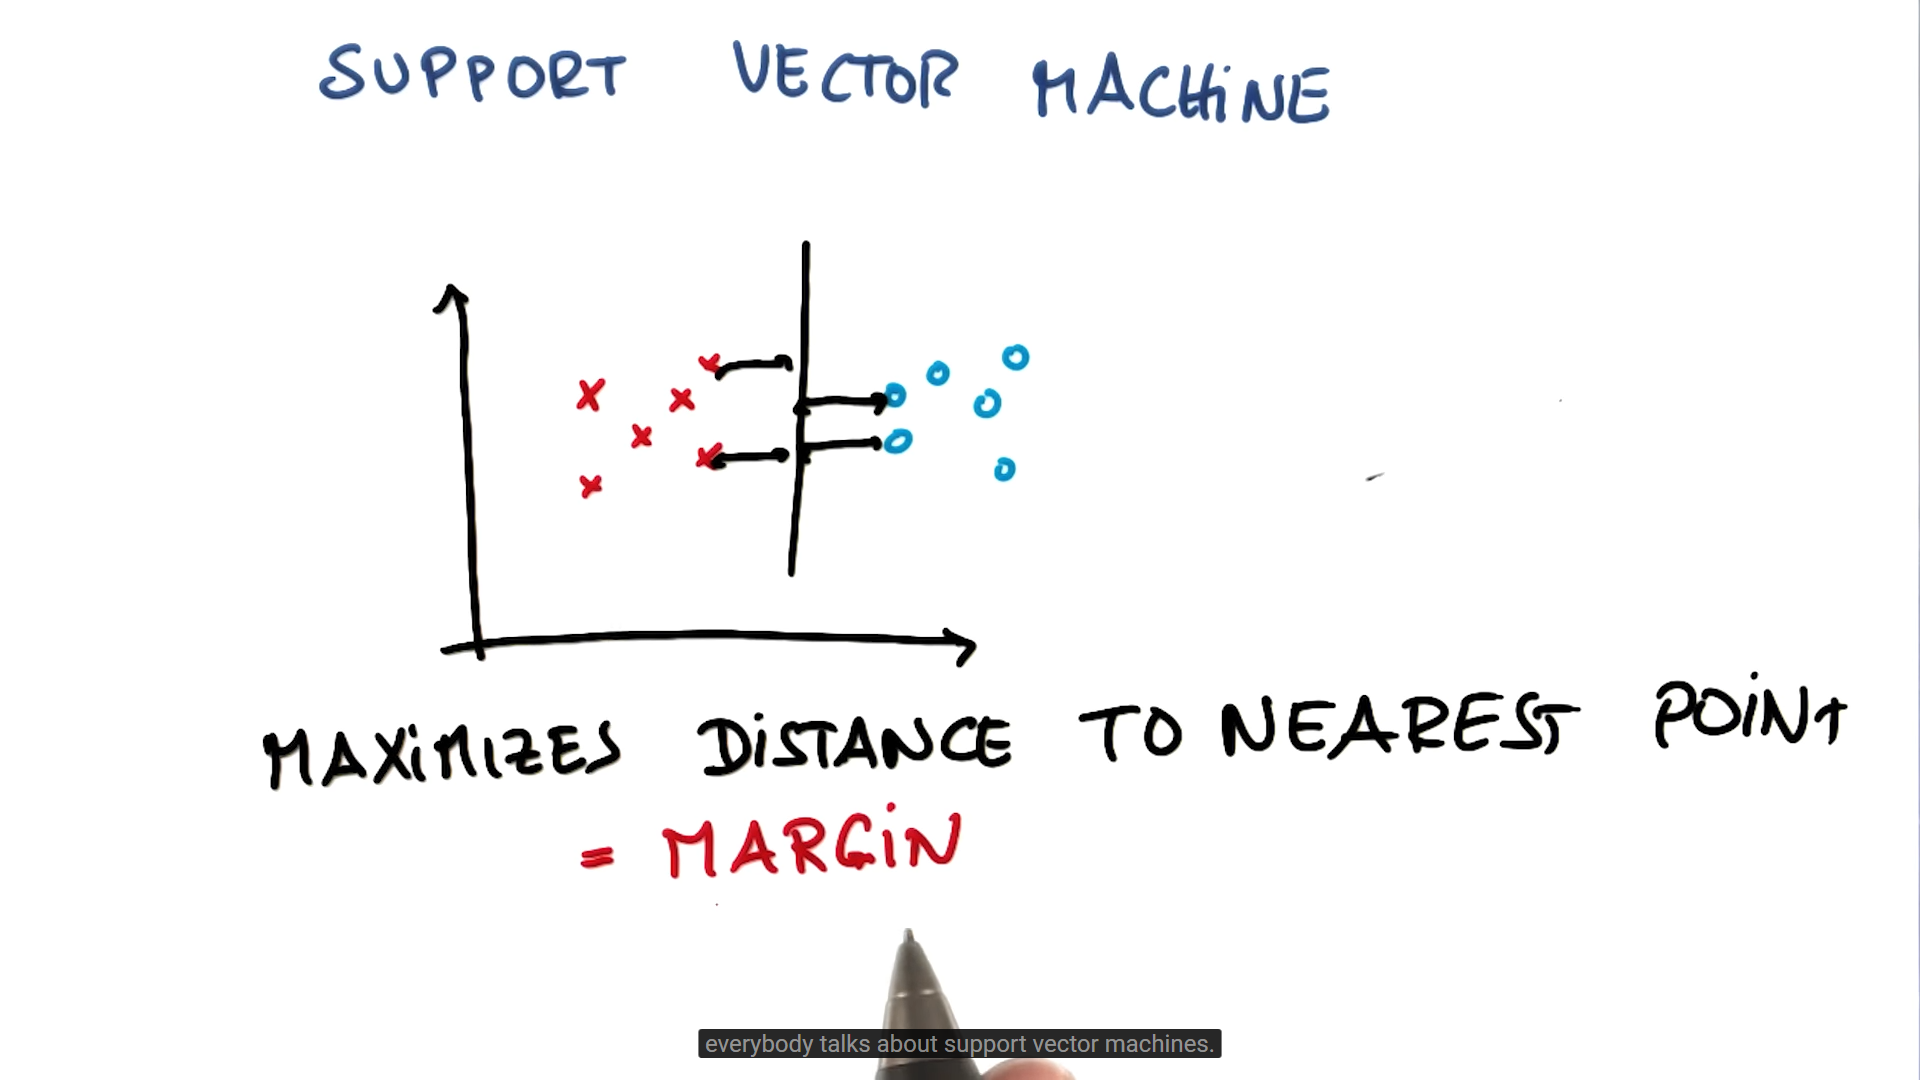 SUPPORT VECTOR MACHINE
MAXIMIZES DISTANCE TO NEAREST POINT
= MARGIN
everybody talks about support vector machines.